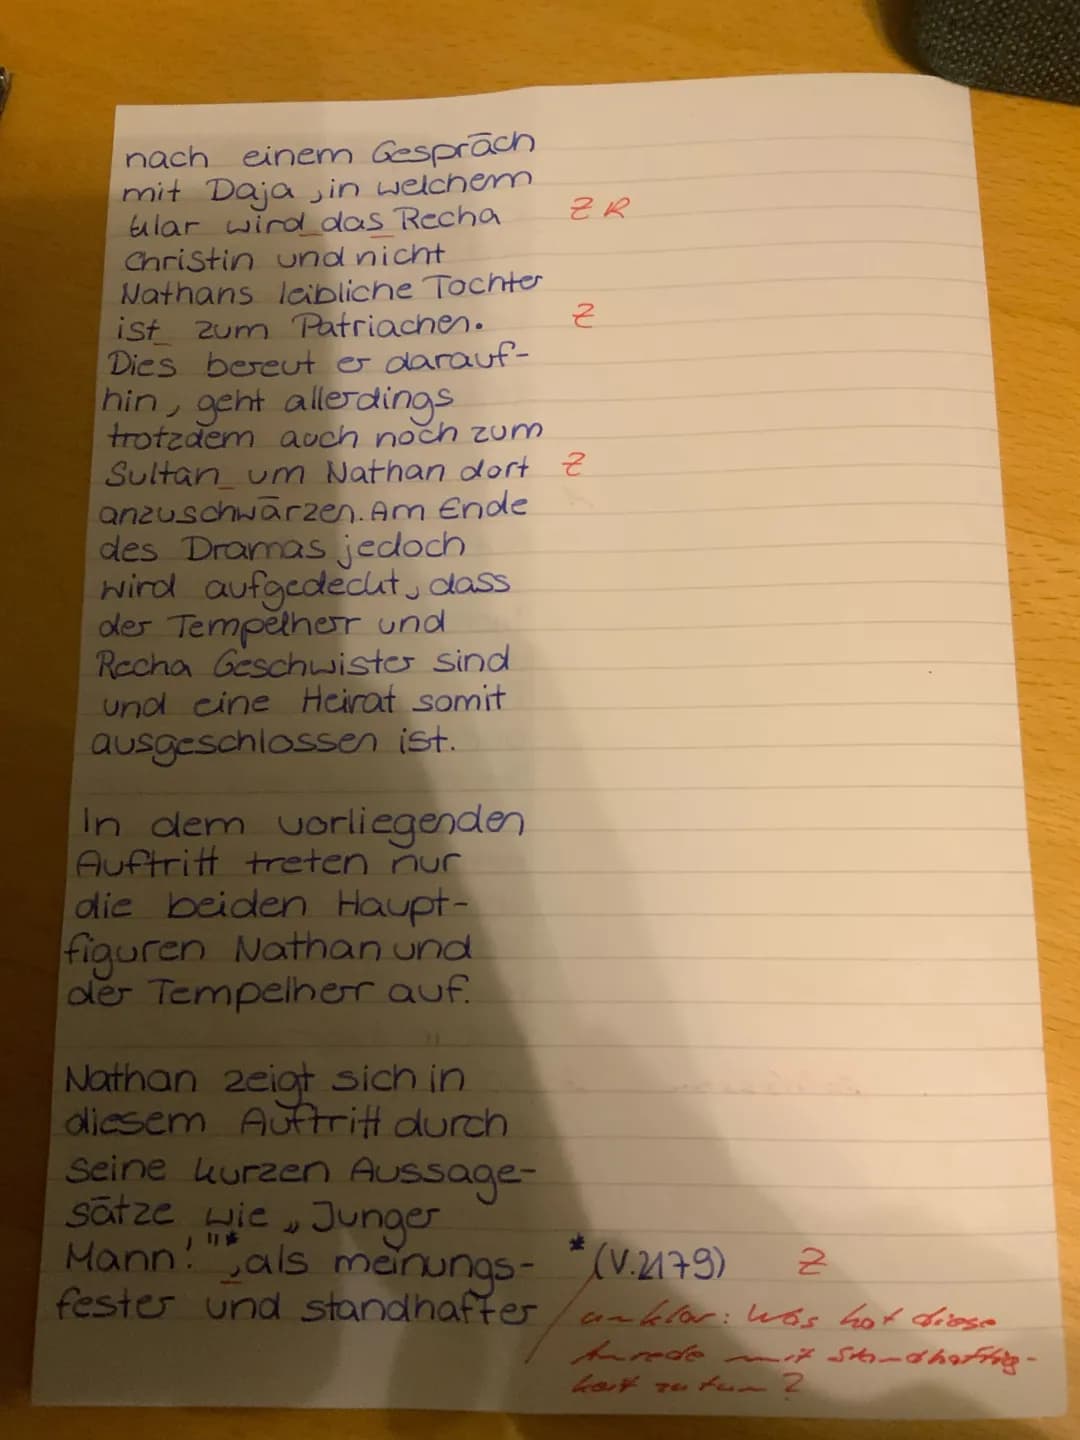 nach einem Gespräch
mit Daja, in welchem
klar wird das Recha Z R
Christin und nicht
Nathans leibliche Tochter
ist zum Patriachen. Z
Dies bereut er darauf-
hin, geht allerdings
trotzdem auch noch zum
Sultan um Nathan dort Z
anzuschwärzen. Am Ende
des Dramas jedoch
wird aufgedeckt, dass
der Tempelherr und
Recha Geschwister sind
und eine Heirat somit
ausgeschlossen ist.
In dem vorliegenden
Auftritt treten nur
die beiden Haupt-
figuren Nathan und
der Tempelherr auf.
Nathan zeigt sich in
diesem Auftritt durch
seine kurzen Aussage-
sätze wie „Junger
Mann!"*, als meinungs- *(V.2179) Z
fester und standhafter
unklar: Was hat diese
Anrede mit Standhaftig-
keit zu tun?